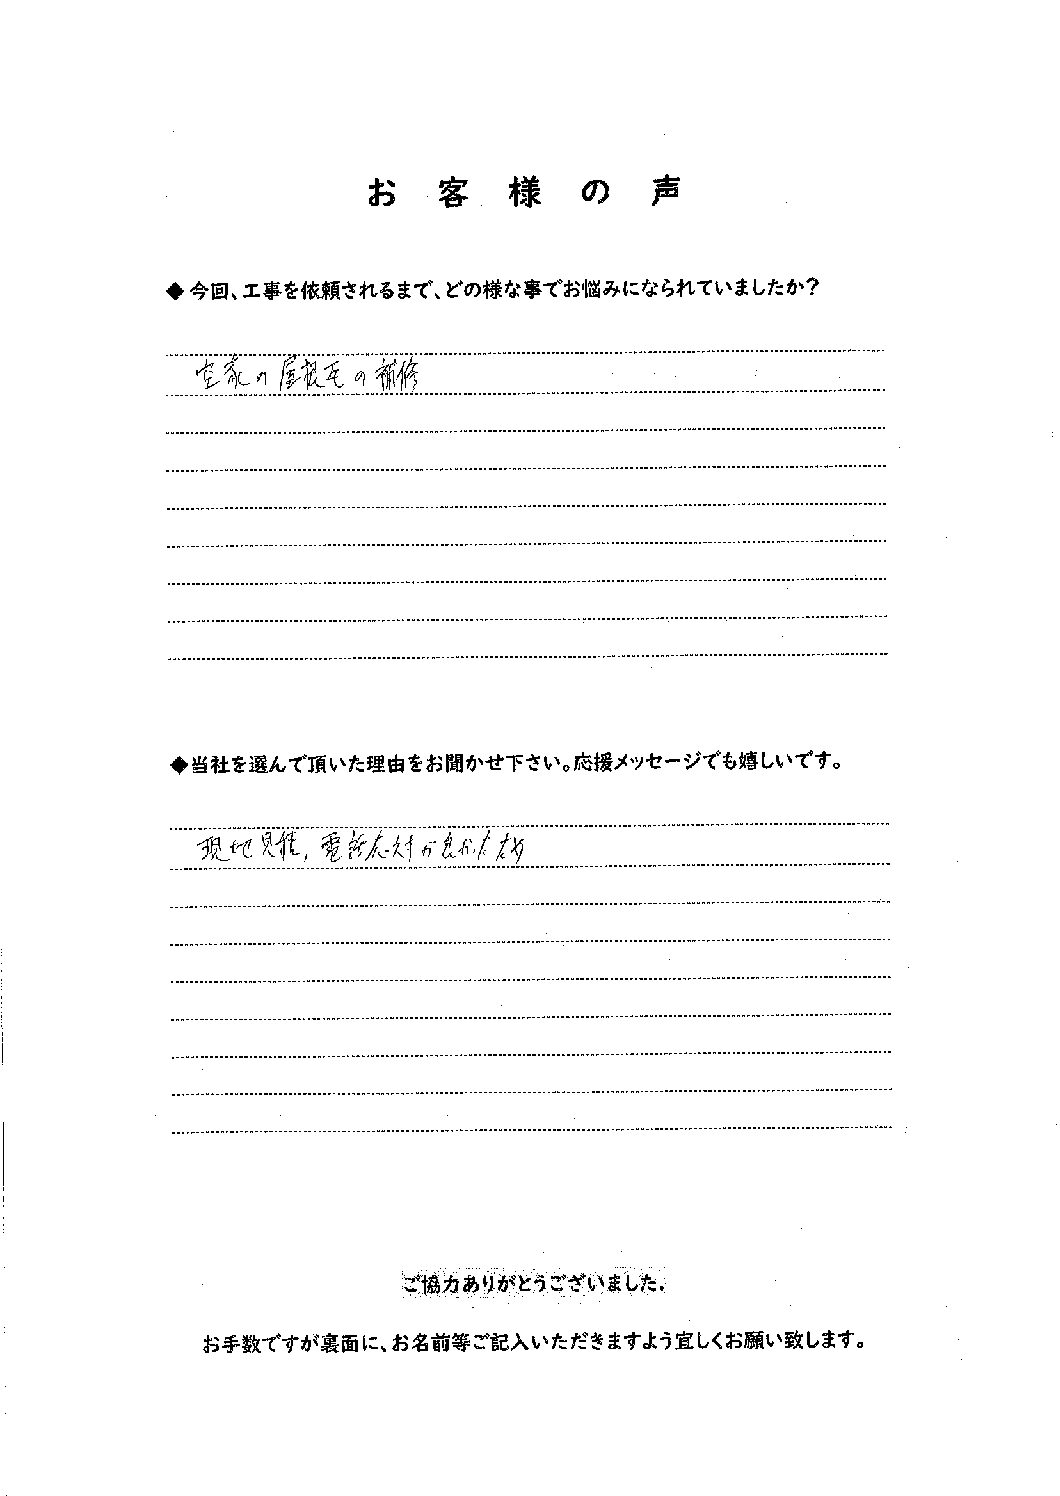 お客様の声
◆今回、工事を依頼されるまで、どの様な事でお悩みになられていましたか?
空家の屋根瓦の補修
◆当社を選んで頂いた理由をお聞かせ下さい。応援メッセージでも嬉しいです。
現地見積、電話応対が良かったため
ご協力ありがとうございました。
お手数ですが裏面に、お名前等ご記入いただきますよう宜しくお願い致します。